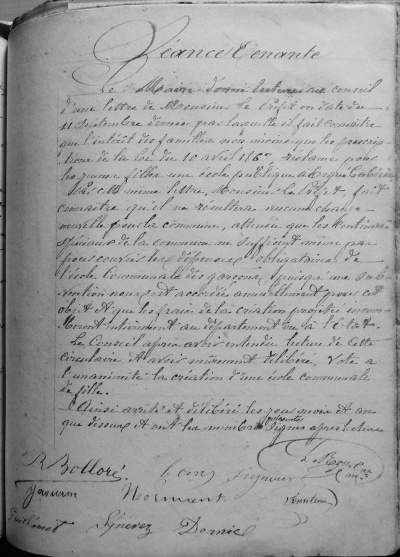 Séance Tenante
Le Maire donne lecture au conseil
d'une lettre de Monsieur le Préfet en date du
11 Septembre dernier par laquelle il fait connaître
que l'intérêt des familles non moins que les prescrip
tions de la loi du 10 avril 1867 réclame pour
les jeunes filles une école publique à Ergué Gabéric
Par cette même lettre, Monsieur le Préfet, fait
connaître qu'il ne résultera aucune charge
nouvelle pour la commune, attendu que les
spéciaux de la commune ne suffisent même pas
pour couvrir les dépenses obligatoires de
l'école Communale des garçons, puisque une sub
vention nous est accordée annuellement pour cet
objet et que les frais de la création projetée incom
beront entièrement au département ou à l'Etat.
Le Conseil après avoir entendu lecture de cette
circulaire et avoir mûrement délibéré, vote à
l'unanimité la création d'une école communale
de fille.
Ainsi arrêté et délibéré les jour mois et an
que dessus et ont les membres présents signé après lecture
R Bolloré. Le Maire
Normant
Signorez Dornic